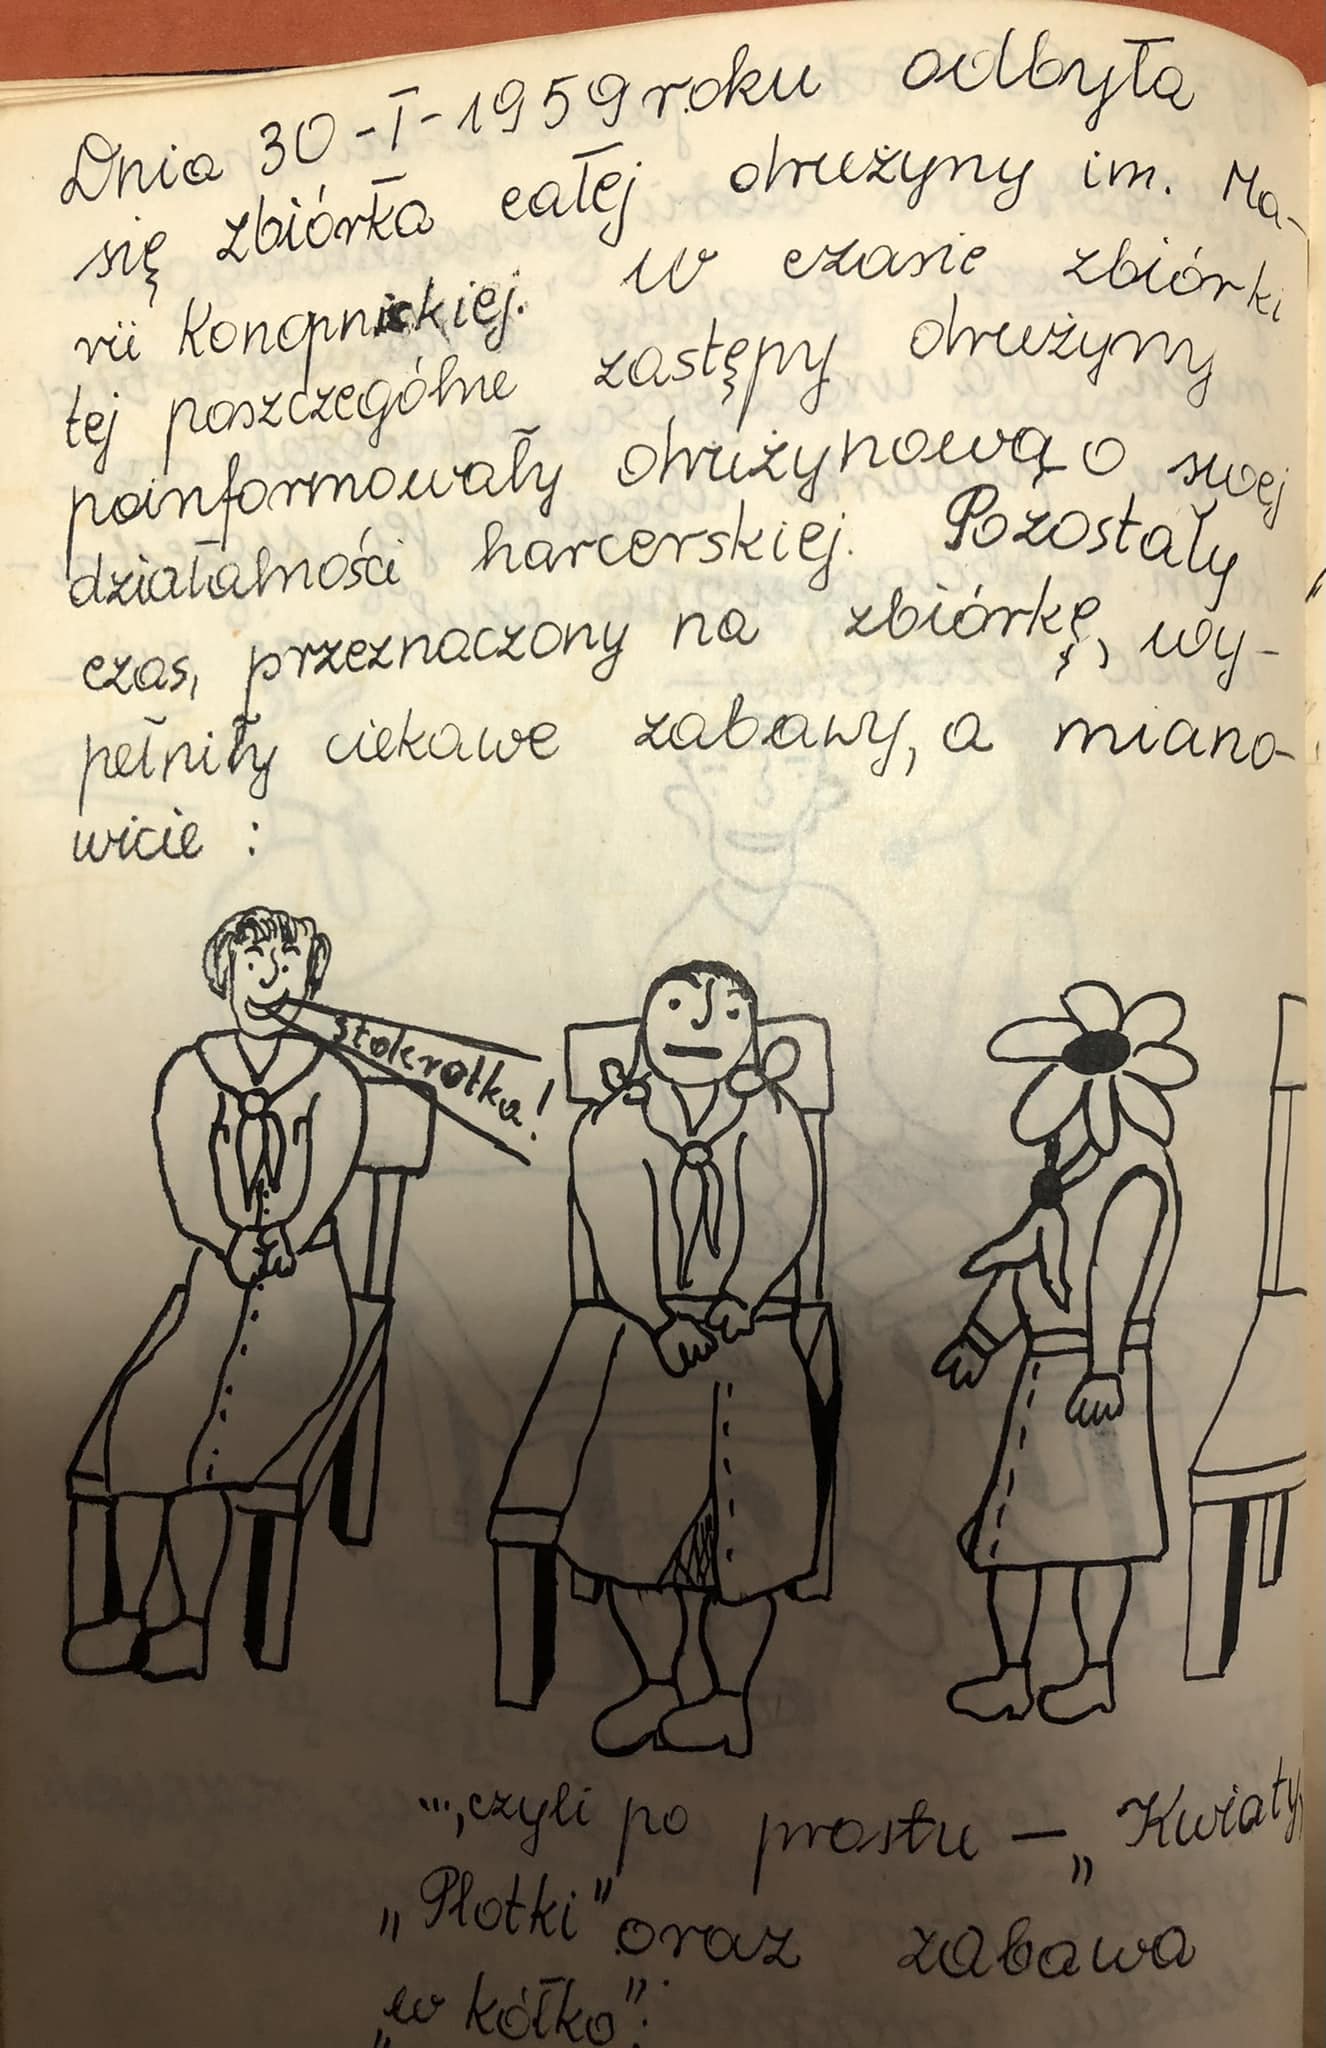 Dnia 30-I-1959 roku odbyła
się zbiórka całej drużyny im. Ma-
rii Konopnickiej. W czasie zbiórki
tej poszczególne zastępy drużyny
poinformowały drużynową o swej
działalności harcerskiej. Pozostały
czas, przeznaczony na zbiórkę, wy-
pełniły ciekawe zabawy, a miano-
wicie :
Stokrotka!
"', czyli po prostu — „Kwiaty,
„Plotki" oraz zabawa
„w kółko".